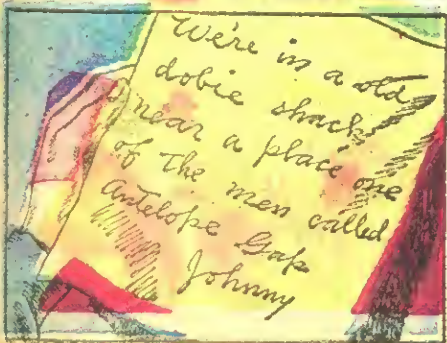 We're in a old
dobie shack
near a place one
of the men called
antelope Gap
Johnny